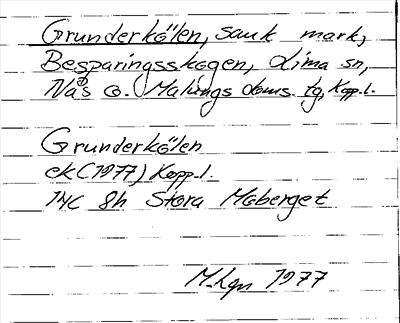 Grunderkölen, sank mark,
Besparingsskogen, Lima sn,
Nås o. Malungs doms. tg, Kopp. l.
Grunderkölen
ek (1977) Kopp. l.
14C 8h Stora Moberget
1977